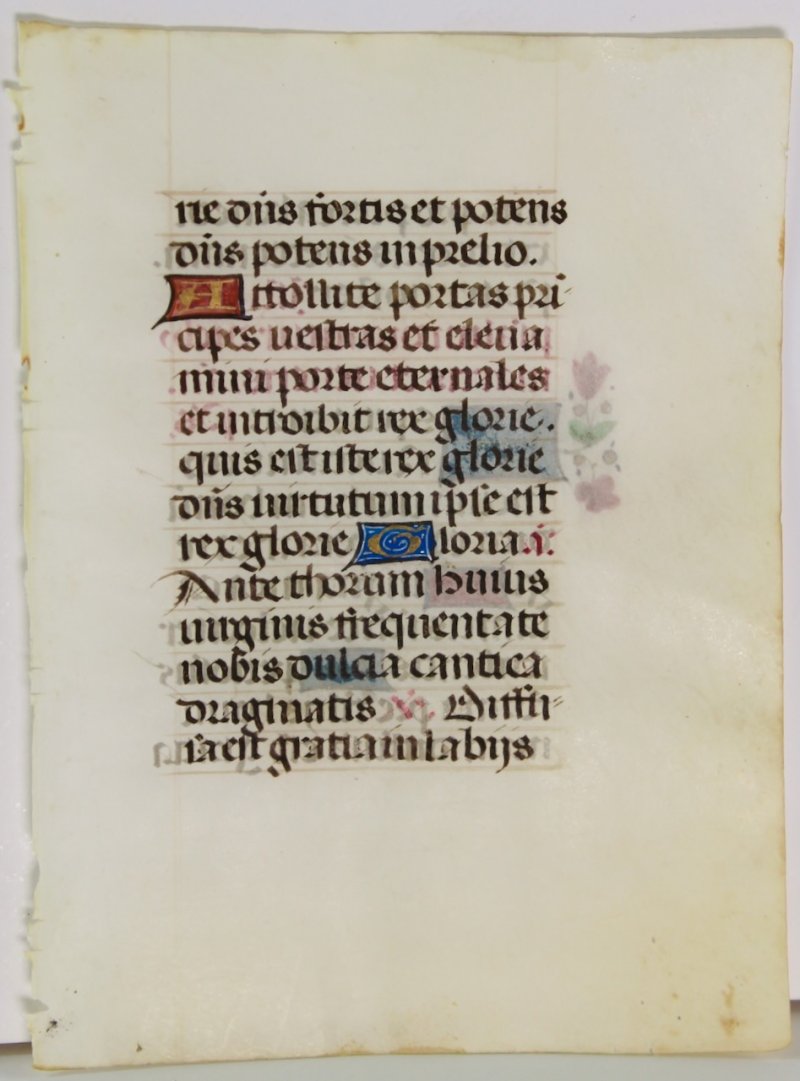 rie dn̄s fortis et potens
dn̄s potens in prelio.
Attollite portas prī-
cipes uestras et eleua
mini porte eternales
et introibit rex glorie.
quis est iste rex glorie
dn̄s uirtutum ipse est
rex glorie Gloria. ĩ.
Ante thorum huius
uirginis frequentate
nobis dulcia cantica
dragmatis V. Diffu-
sa est gratia in labijs